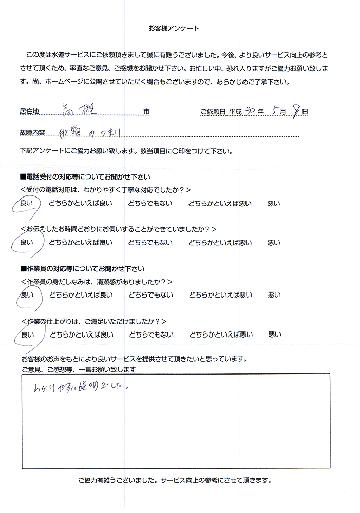 お客様アンケート
この度は水道サービスにご依頼頂きまして誠に有難うございました。今後、より良いサービス向上の参考と
させて頂くため、率直なご意見、ご感想をお聞かせ下さい。お忙しい中、恐れ入りますがご協力お願い致しま
す。尚、ホームページに公開させていただく場合もございますので、あらかじめご了承下さい。
居住地 高槻 市 ご依頼日 平成 30 年 5 月 8 日
故障内容 つまり
下記アンケートにご協力お願い致します。該当項目に○印をつけて下さい。
■電話受付の対応等についてお聞かせ下さい
<受付の電話対応は、わかりやすく丁寧な対応でしたか？>
良い どちらかといえば良い どちらでもない どちらかといえば悪い 悪い
<お伝えしたお時間どおりにお伺いすることができていましたか？>
良い どちらかといえば良い どちらでもない どちらかといえば悪い 悪い
■作業員の対応等についてお聞かせ下さい
<作業員の身だしなみは、清潔感がありましたか？>
良い どちらかといえば良い どちらでもない どちらかといえば悪い 悪い
<作業の仕上がりは、ご満足いただけましたか？>
良い どちらかといえば良い どちらでもない どちらかといえば悪い 悪い
お客様のお声をもとにより良いサービスを提供させて頂きたいと思っています。
ご意見、ご感想等、一言お願い致します
わかりやすい説明でした。
ご協力有難うございました。サービス向上の参考にさせて頂きます。